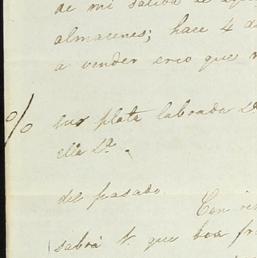 de mi salida de
almacenes; hace 4 de
a vender creo que
% sus plata labrada
ella
del pasado.
Con
sabrá V. que